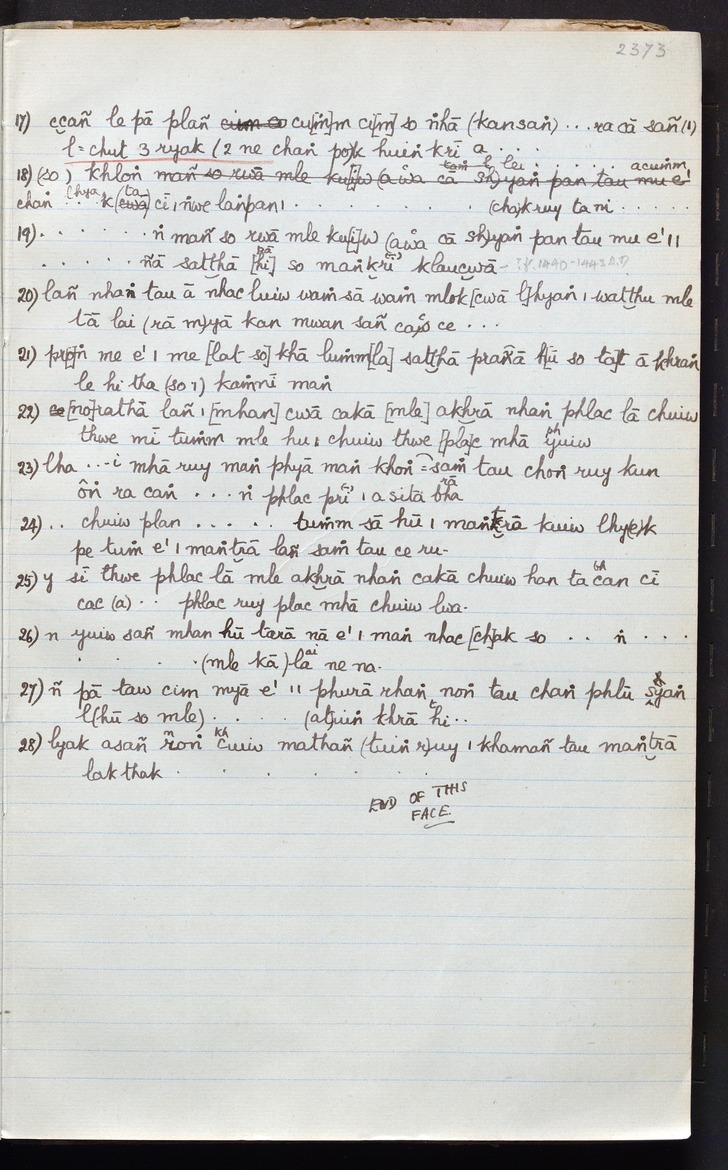 2373
17) ccañ le pā plañ cu[ṁ]m cu[m] so ṅhā (kansañ) ... ra cā sañ (1)
l = chut 3 ryak (2 ne chaṅ po)k huiṅ krī a ...
18) (so) khloṅ mañ so rwā mle ku[i]w (a ẘa cā sh)yaṅ pan tau mu e'
chaṅ .. k(cwā) cī, ṅwe laṅpan, . . . . . (cha)k ruy ta ṅi . . . . .
19) . . . . . . ṅ mañ so rwā mle ku[i]w (a ẘa cā sh)yaṅ pan tau mu e' ıı
. . . . . . ñā satthā [hi] so maṅkrī klaucwā – : K. 1440-1443 A.D
20) lañ nhaṅ tau ā nhac luiw waṁ sā waṁ mlok [cwā l]hyaṅ, watthu mle
tā lai (rā m)yā kan mwan sañ ca ce ...
21) pr[o]ṅ me e', me [lat so] khā luṁm[la] satthā prañā h[i] so ta[t] ā khraṅ
le hi tha (so,) kaṁnī maṅ
22) [no]rathā lañ, [mhan] cwā cakā [mle] akhrā nhaṅ phlac lā chuiw
thwe mī tuṁm mle hu, chuiw thwe [pla]c mhā yuiw
23) lha ...i mhā ruy maṅ phyā maṅ khoṅ = saṁ tau choṅ ruy kun
ôṅ ra caṅ ... ṅ phlac prī, a sitā bhā
24) .. chuiw plan . . . . . tuṁm sā hū, maṅtrā kuiw lhy(e)k
pe tuṁ e', maṅtrā lañ saṁ tau ce ru-
25) y sī thwe phlac lā mle akhrā nhaṅ cakā chuiw han ta can cī
cac (a) . . phlac ruy plac mhā chuiw lwa.
26) n yuiw sañ mhan hū tarā nā e', maṅ nhac [ch]ak so .. ṅ . . .
. . . .(mle kā) lā ne na.
27) ñ pā taw cim myā e' ıı phurā rhaṅ noṅ tau chaṅ phlū syaṅ
l(hū so mle) . . . . (at)uiṅ khrā hi..
28) lyak asañ roṅ cuiw mathañ (tuiṅ r)uy, khamañ tau maṅtrā
lak thak . . . . . .
END OF THIS
FACE.